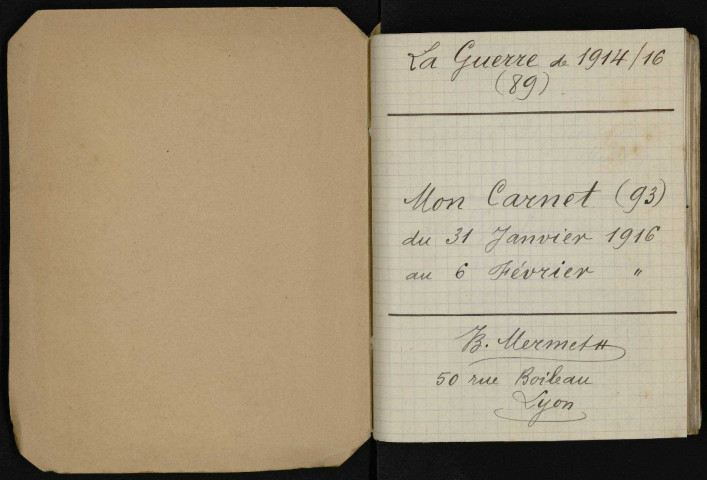 La Guerre de 1914/16
(89)
Mon Carnet (93)
du 31 Janvier 1916
au 6 Février "
B. Mermet
50 rue Boileau
Lyon